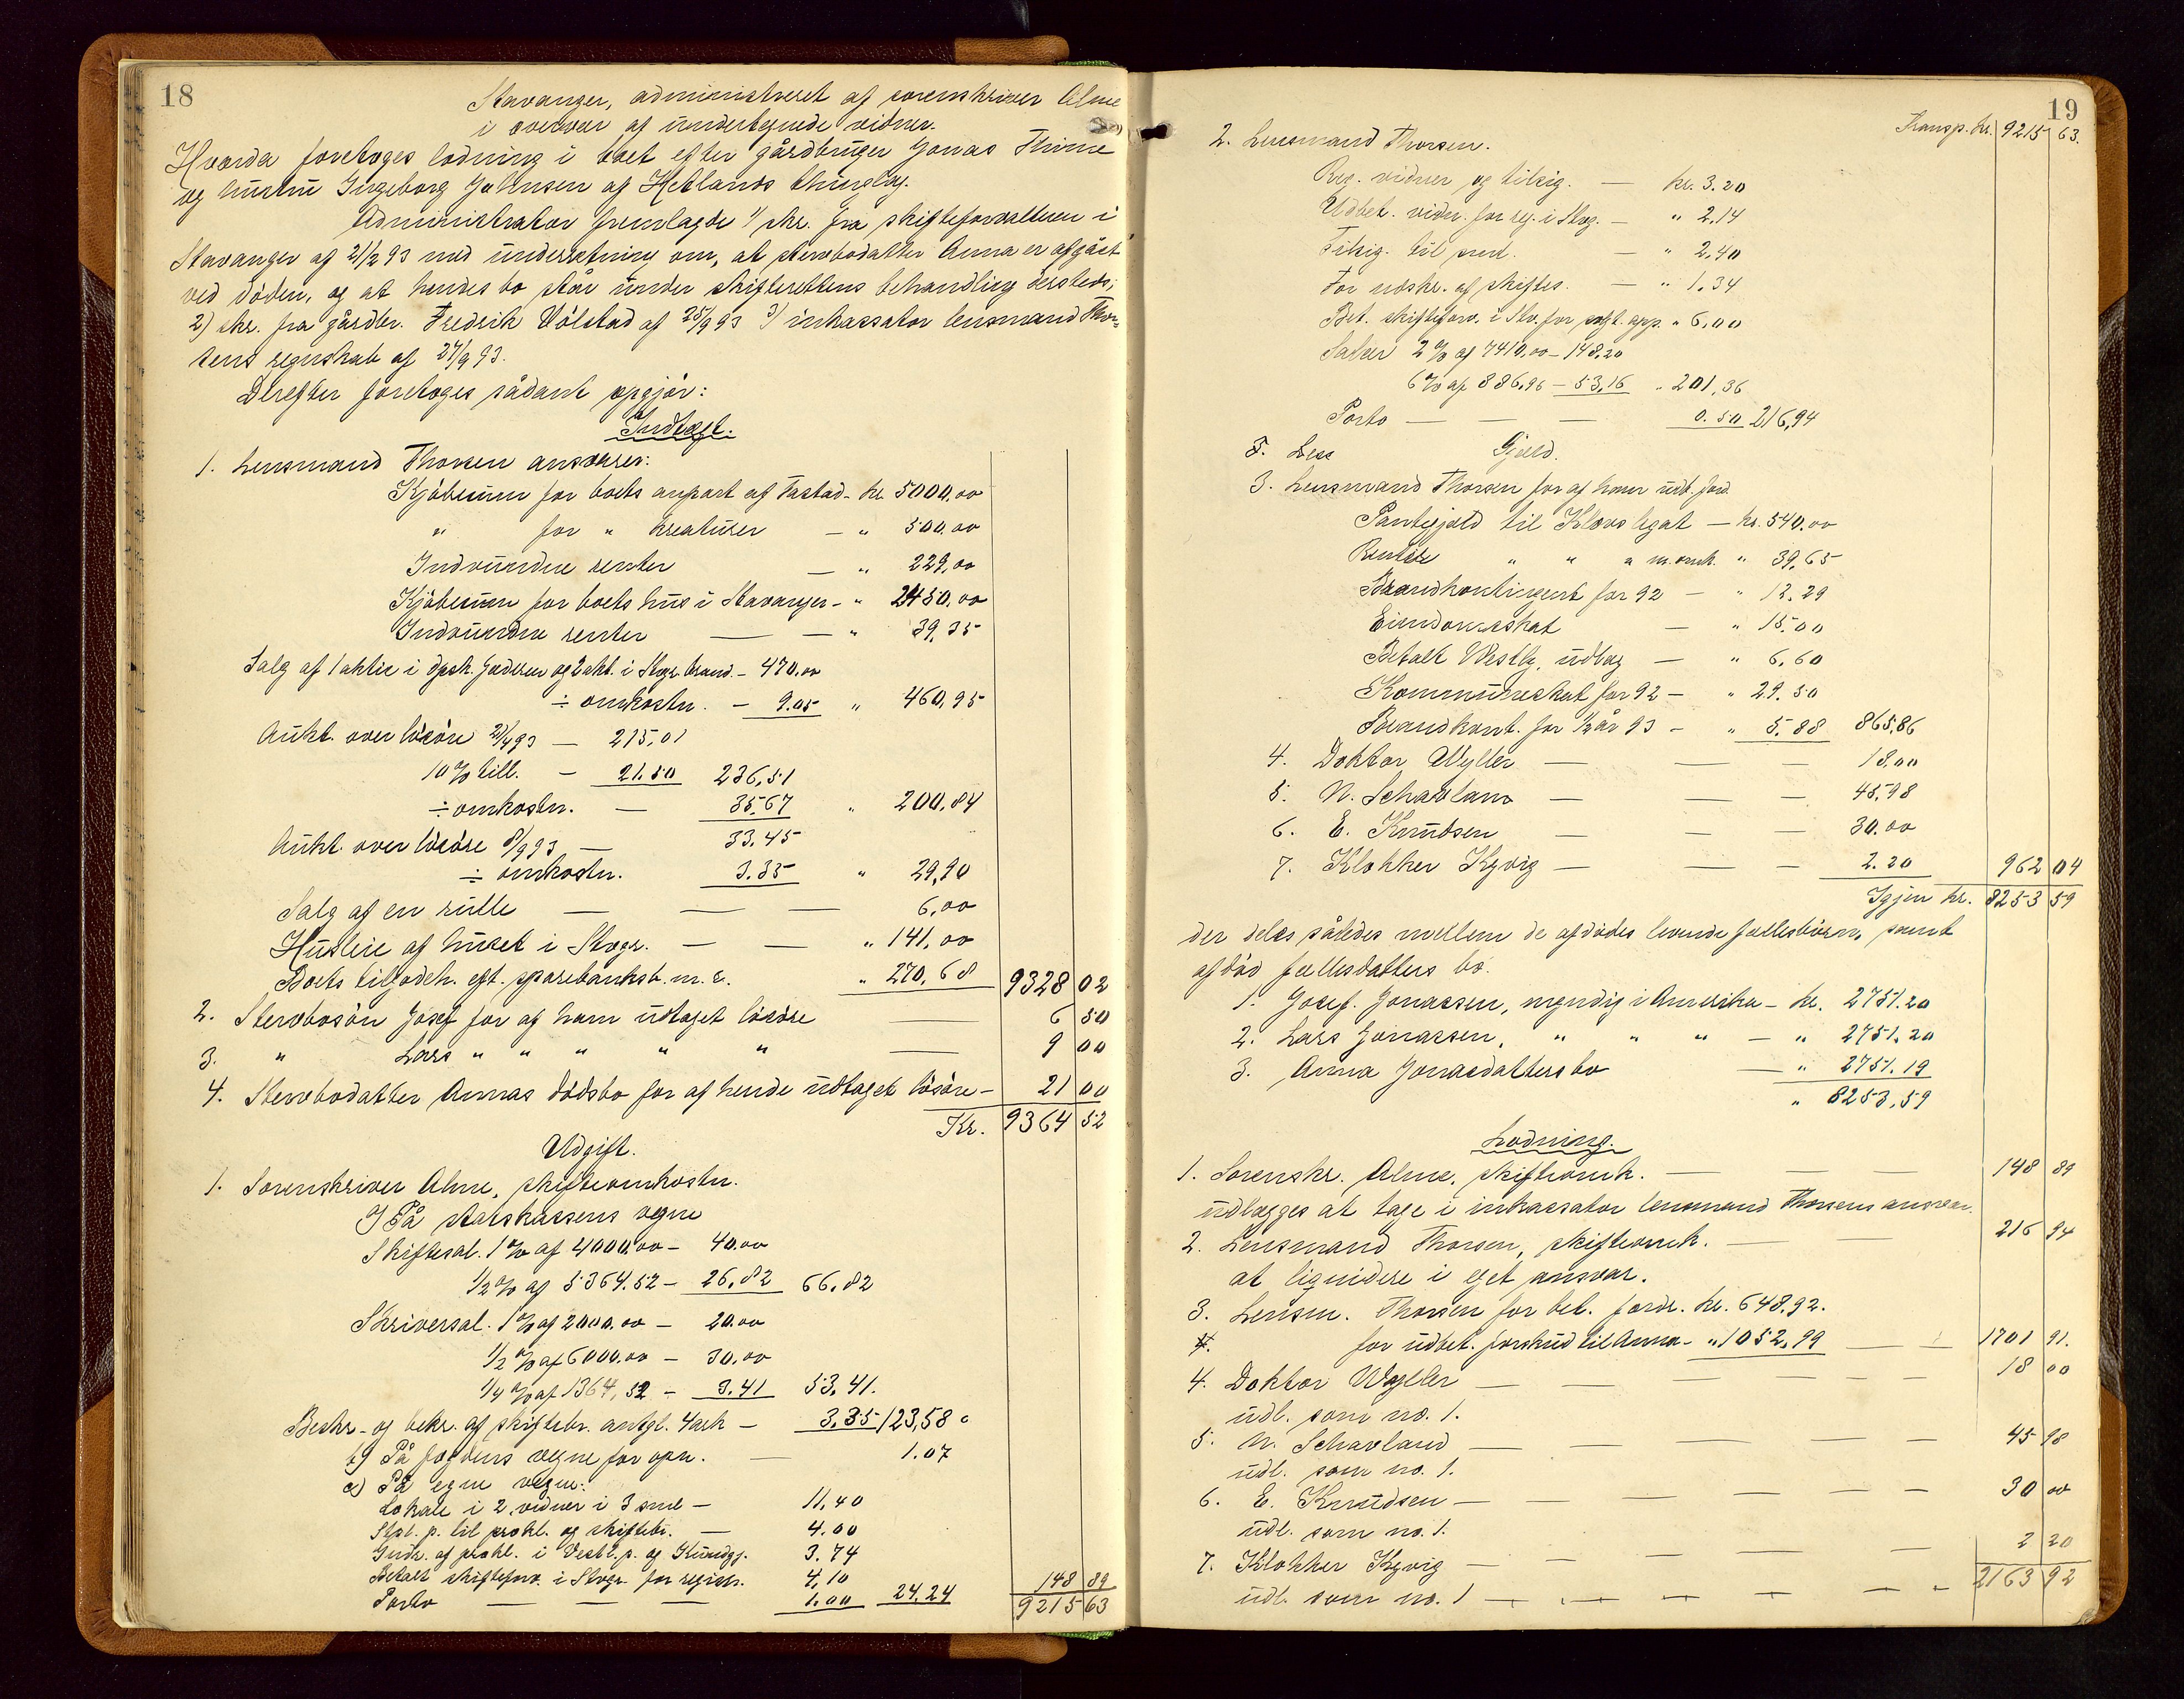 18
Stavanger, administreret af sorenskriver Alme
i overvær af undertegnede vidner.
Hvorda foretoges lodning i boet efter gårdbruger Jonas Thime
og hustru Ingeborg Johnsen af Hetlands thinglag.
Administrator fremlagde 1/ skr. fra skifteforvalteren i
Stavanger af 21/2 93 med underretning om, at stervbodatter Anna er afgået
ved døden, og at hendes bo står under skifterettens behandling dersteds,
2) skr. fra gårdbr. Fredrik Vølstad af 25/9 93 3) inkassator lensmand Thor-
sens regnskab af 27/9 93.
Derefter foretoges sådant opgjør:
Indtægt.
1. Lensmand Thorsen ansvarer:
Kjøbesum for boets anpart af Tastad - kr. 5000,00
" for " kreaturer - " 500,00
Indvundne renter — " 229,00
Kjøbesum for boets hus i Stavanger - " 2450,00
Indvundne renter — — " 39,35
Salg af 1 aktie i dpsk. Jæderen og 2 akt. i Stvgr. brand. - 470,00
÷ omkostn. - 9.05 " 460,95
Aukt. over løsøre 21/4 93 — 215,01
10 % till. - 21.50 236,51
÷ omkostn. — 35.67 " 200,84
Aukt. over løsøre 8/9 93 — 33.45
÷ omkostn. 3.35 " 29,90
Salg af en rulle — — — 6,00
Husleie af huset i Stvgr. — — " 141,00
Boets tilgodeh. eft. sparebanksb. m. e. " 270,68 9328 02
2. Stervbosøn Josef for af ham udtaget løsøre — 6 50
3. " Lars " " " " " — 9 00
4. Stervbodatter Annas dødsbo for af hende udtaget løsøre - 21 00
Kr. 9364 52
Udgift.
1. Sorenskriver Alme, skifteomkostn.
På statskassens vegne
Skiftesal. 1 % af 4000,00 - 40.00
1/2 % af 5364.52 - 26.82 66.82
Skriversal. 1 % af 2000.00 - 20.00
1/2 % af 6000.00 - 30.00
1/4 % af 1364,52 - 3.41 53,41.
Beskr.- og bekr. af skiftebr. antgl. 4 ark - 3.35 123,58
b) På fogdens vegne for opn. — 1.07
c) På egne vegne:
Lokale i 2, vidner i 3 sml - 11,40
Stpl. p. til prokl. og skiftebr. — 4.00
Indr. af prokl. i Vestl. p. og Kundgj. 3.74
Betalt skifteforv. i Stvgr. for registr. 4,10
Porto — — — 1.00 24.24 148 89
9215 63
19
Transp. kr. 9215 63.
2. Lensmand Thorsen.
Reg. vidner og tilsig. — kr. 3.20
Udbet. vidn. for reg. i Stvg. — " 2.14
Tilsig. til pred. — " 2,40
For udskr. af skiftes. — " 1.34
Bet. skifteforv. i Stv. for opp. " 6,00
Salær 2 % af 7410,00 - 148,20
6 % af 886,96 - 53,16 " 201,36
Porto — — — 0.50 216,94
Gjæld.
3. Lensmand Thorsen for af ham udb. ford.
Pantegjæld til Kloves legat — kr. 540.00
Renter " " " m. omk. " 39,65
Brandkontingent for 92 — " 12.29
Eiendomsskat — " 15,00
Betalt Westly, udlæg — " 6,60
Kommuneskat for 92 — " 29.50
Brandkont. for 1/2 år 93 — " 5.88 865,86
4. Doktor Wyller — — — 18.00
5. N. Schavland — — — 45,98
6. E. Knudsen — — — 30.00
7. Klokker Kyvig — — — 2.20 962 04
Igjen kr. 8253 59
der deles således mellem de afdødes levende fællesbørn, samt
afdød fællesdatters bo.
1. Josef Jonassen, myndig i Amerika - kr. 2751.20
2. Lars Jonassen, " " " - " 2751.20
3. Anna Jonasdatters bo — " 2751.19
" 8253,59
Lodning.
1. Sorenskr. Alme, skifteomk. — — — 148 89
udlægges at tage i inkassator lensmand Thorsens ansvar.
2. Lensmand Thorsen, skifteomk. — — 216 94
at liqvidere i eget ansvar.
3. Lensm. Thorsen for bet. fordr. kr. 648.92.
for udbet. forskud til Anna - " 1052,99 — — 1701 91.
4. Doktor Wyller — — — — — 18 00
udl. som no. 1.
5. N. Schavland — — — — — 45 98
udl. som no. 1.
6. E. Knudsen — — — — — 30 00
udl. som no. 1.
7. Klokker Kyvig — — — — 2 20
udl. som no. 1 — — — — — 2163 92